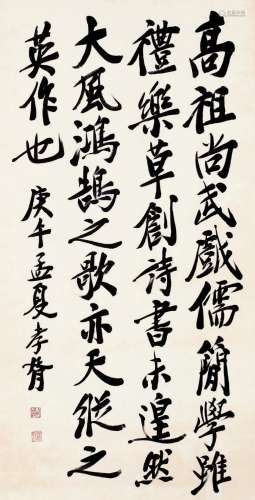 高祖尚武戲儒簡學雖
禮樂草創詩書未遑然
大風鴻鵠之歌亦天縱之
英作也
庚午孟夏孝胥